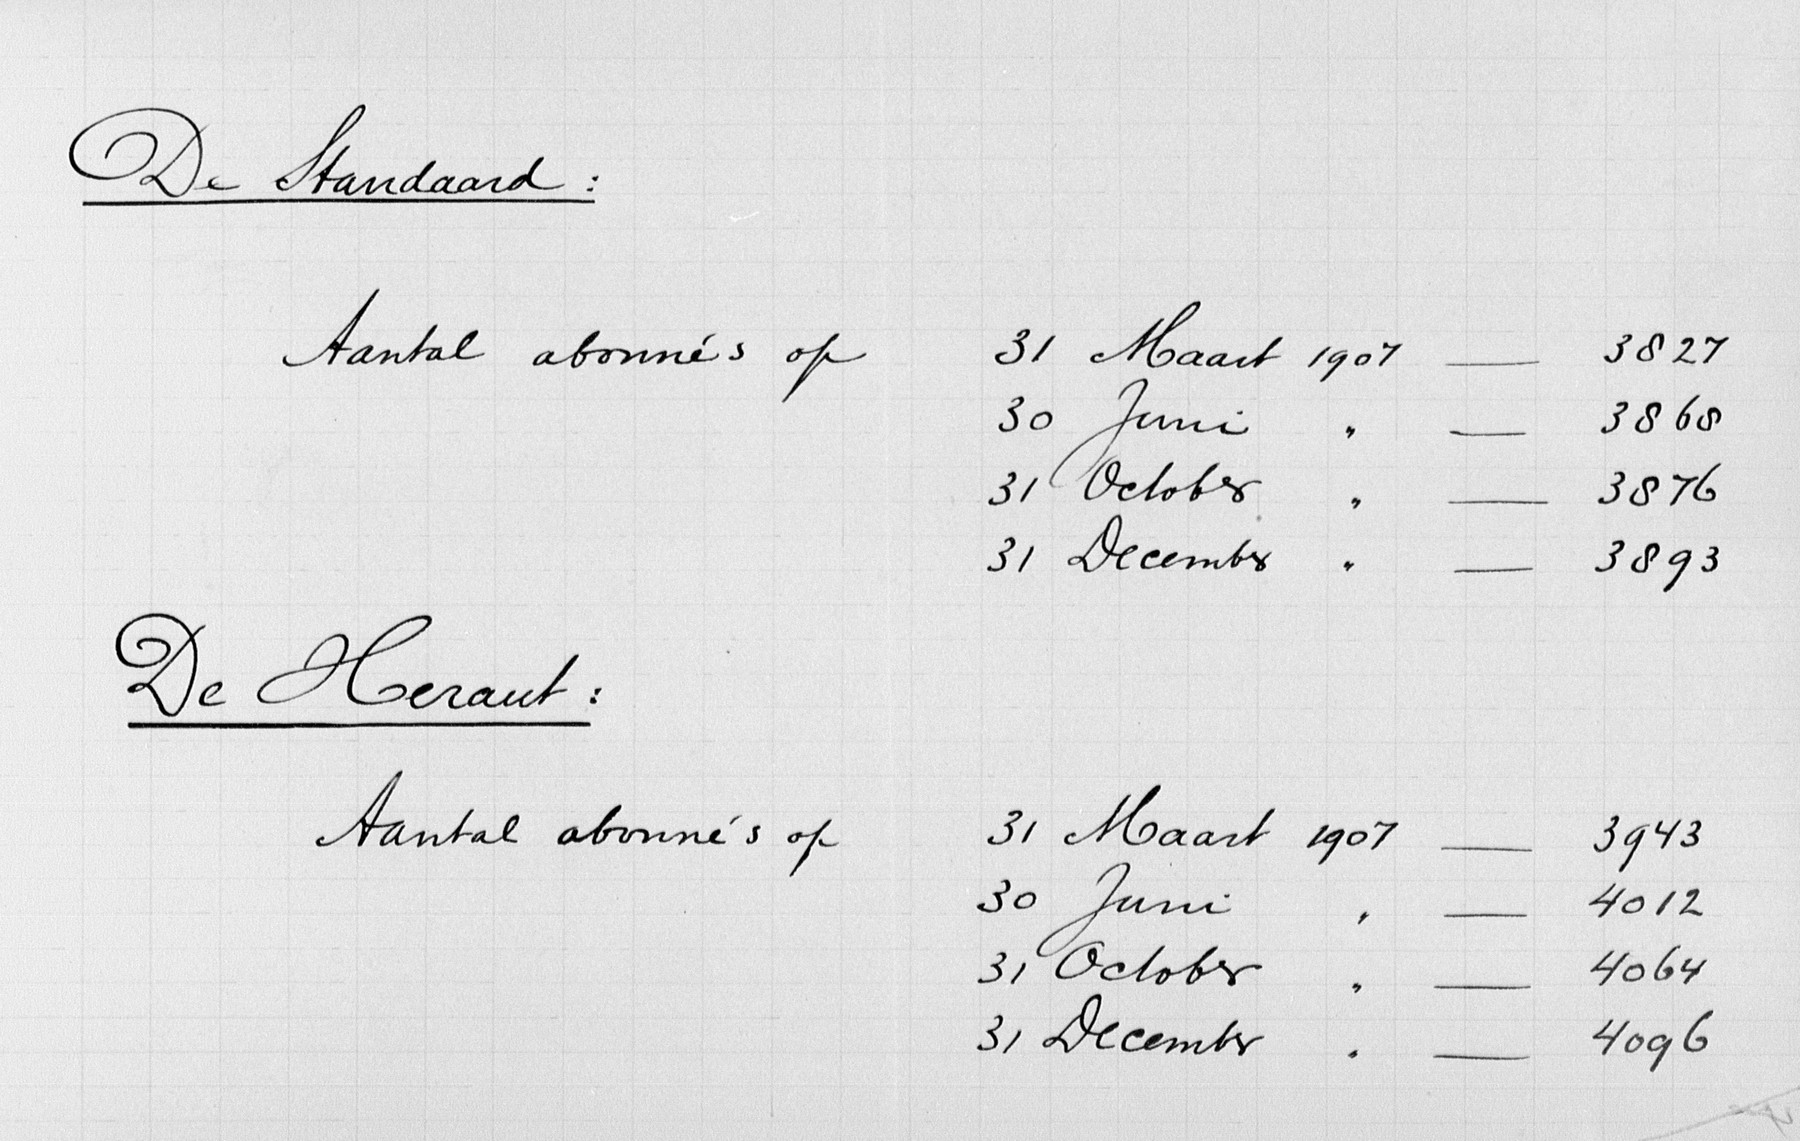 De Standaard :
Aantal abonné's op 31 Maart 1907 — 3827
30 Juni " — 3868
31 October " — 3876
31 December " — 3893
De Heraut :
Aantal abonné's op 31 Maart 1907 — 3943
30 Juni " — 4012
31 October " — 4064
31 December " — 4096